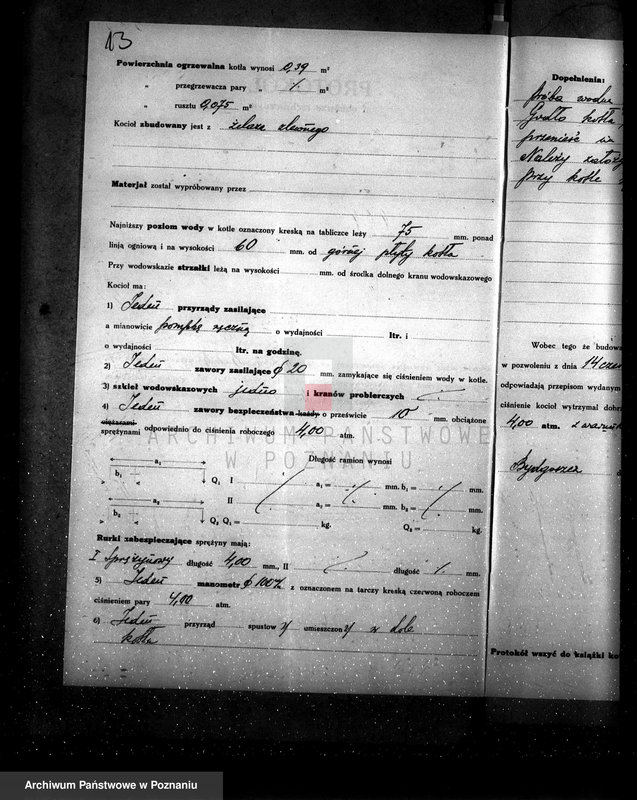 13
Powierzchnia ogrzewalna kotła wynosi 0,39 m²
„ przegrzewacza pary ⁒ m²
„ rusztu 0,075 m²
Kocioł zbudowany jest z żelaza zlewnego
Materjał został wypróbowany przez
Najniższy poziom wody w kotle oznaczony kreską na tabliczce leży 75 mm. ponad
linją ogniową i na wysokości 60 mm. od górnej płyty kotła
Przy wodowskazie strzałki leżą na wysokości mm. od środka dolnego kranu wodowskazowego
Kocioł ma:
1) Jeden przyrządy zasilające
a mianowicie pompkę ręczną o wydajności ltr. i
o wydajności ltr. na godzinę.
2) Jeden zawory zasilające ϕ 20 mm. zamykające się ciśnieniem wody w kotle.
3) szkieł wodowskazowych jedno i kranów probierczych ⁒
4) Jeden zawory bezpieczeństwa każdy o prześwicie 10 mm. obciążone
ciężarami
sprężynami odpowiednio do ciśnienia roboczego 4,00 atm.
ARCHIWUM PAŃSTWOWE
W POZNANIU
Długość ramion wynosi
a₁
b₁ Q₁ I ⁒ a₁ = ⁒ mm. b₁ = ⁒ mm.
a₂ II a₂ = ⁒ mm. b₂ = ⁒ mm.
b₂ Q₂ Q₁ = kg. Q₂ = kg.
Rurki zabezpieczające sprężyny mają:
I Sprężynowy długość 4,00 mm., II ⁒ długość ⁒ mm.
5) Jeden manometr ϕ 100 z oznaczonem na tarczy kreską czerwoną roboczem
ciśnieniem pary 4,00 atm.
6) Jeden przyrząd spustowy umieszczony w dole
kotła
Dopełnienia:
Próba wodna
Godło kotła
przenieść na
Należy założy
przy kotle
Wobec tego że budowa
w pozwoleniu z dnia 14 czer
odpowiadają przepisom wydanym
ciśnienie kocioł wytrzymał dobr
4,00 atm. z warun
Bydgoszcz
Protokół wszyć do książki ko
Archiwum Państwowe w Poznaniu